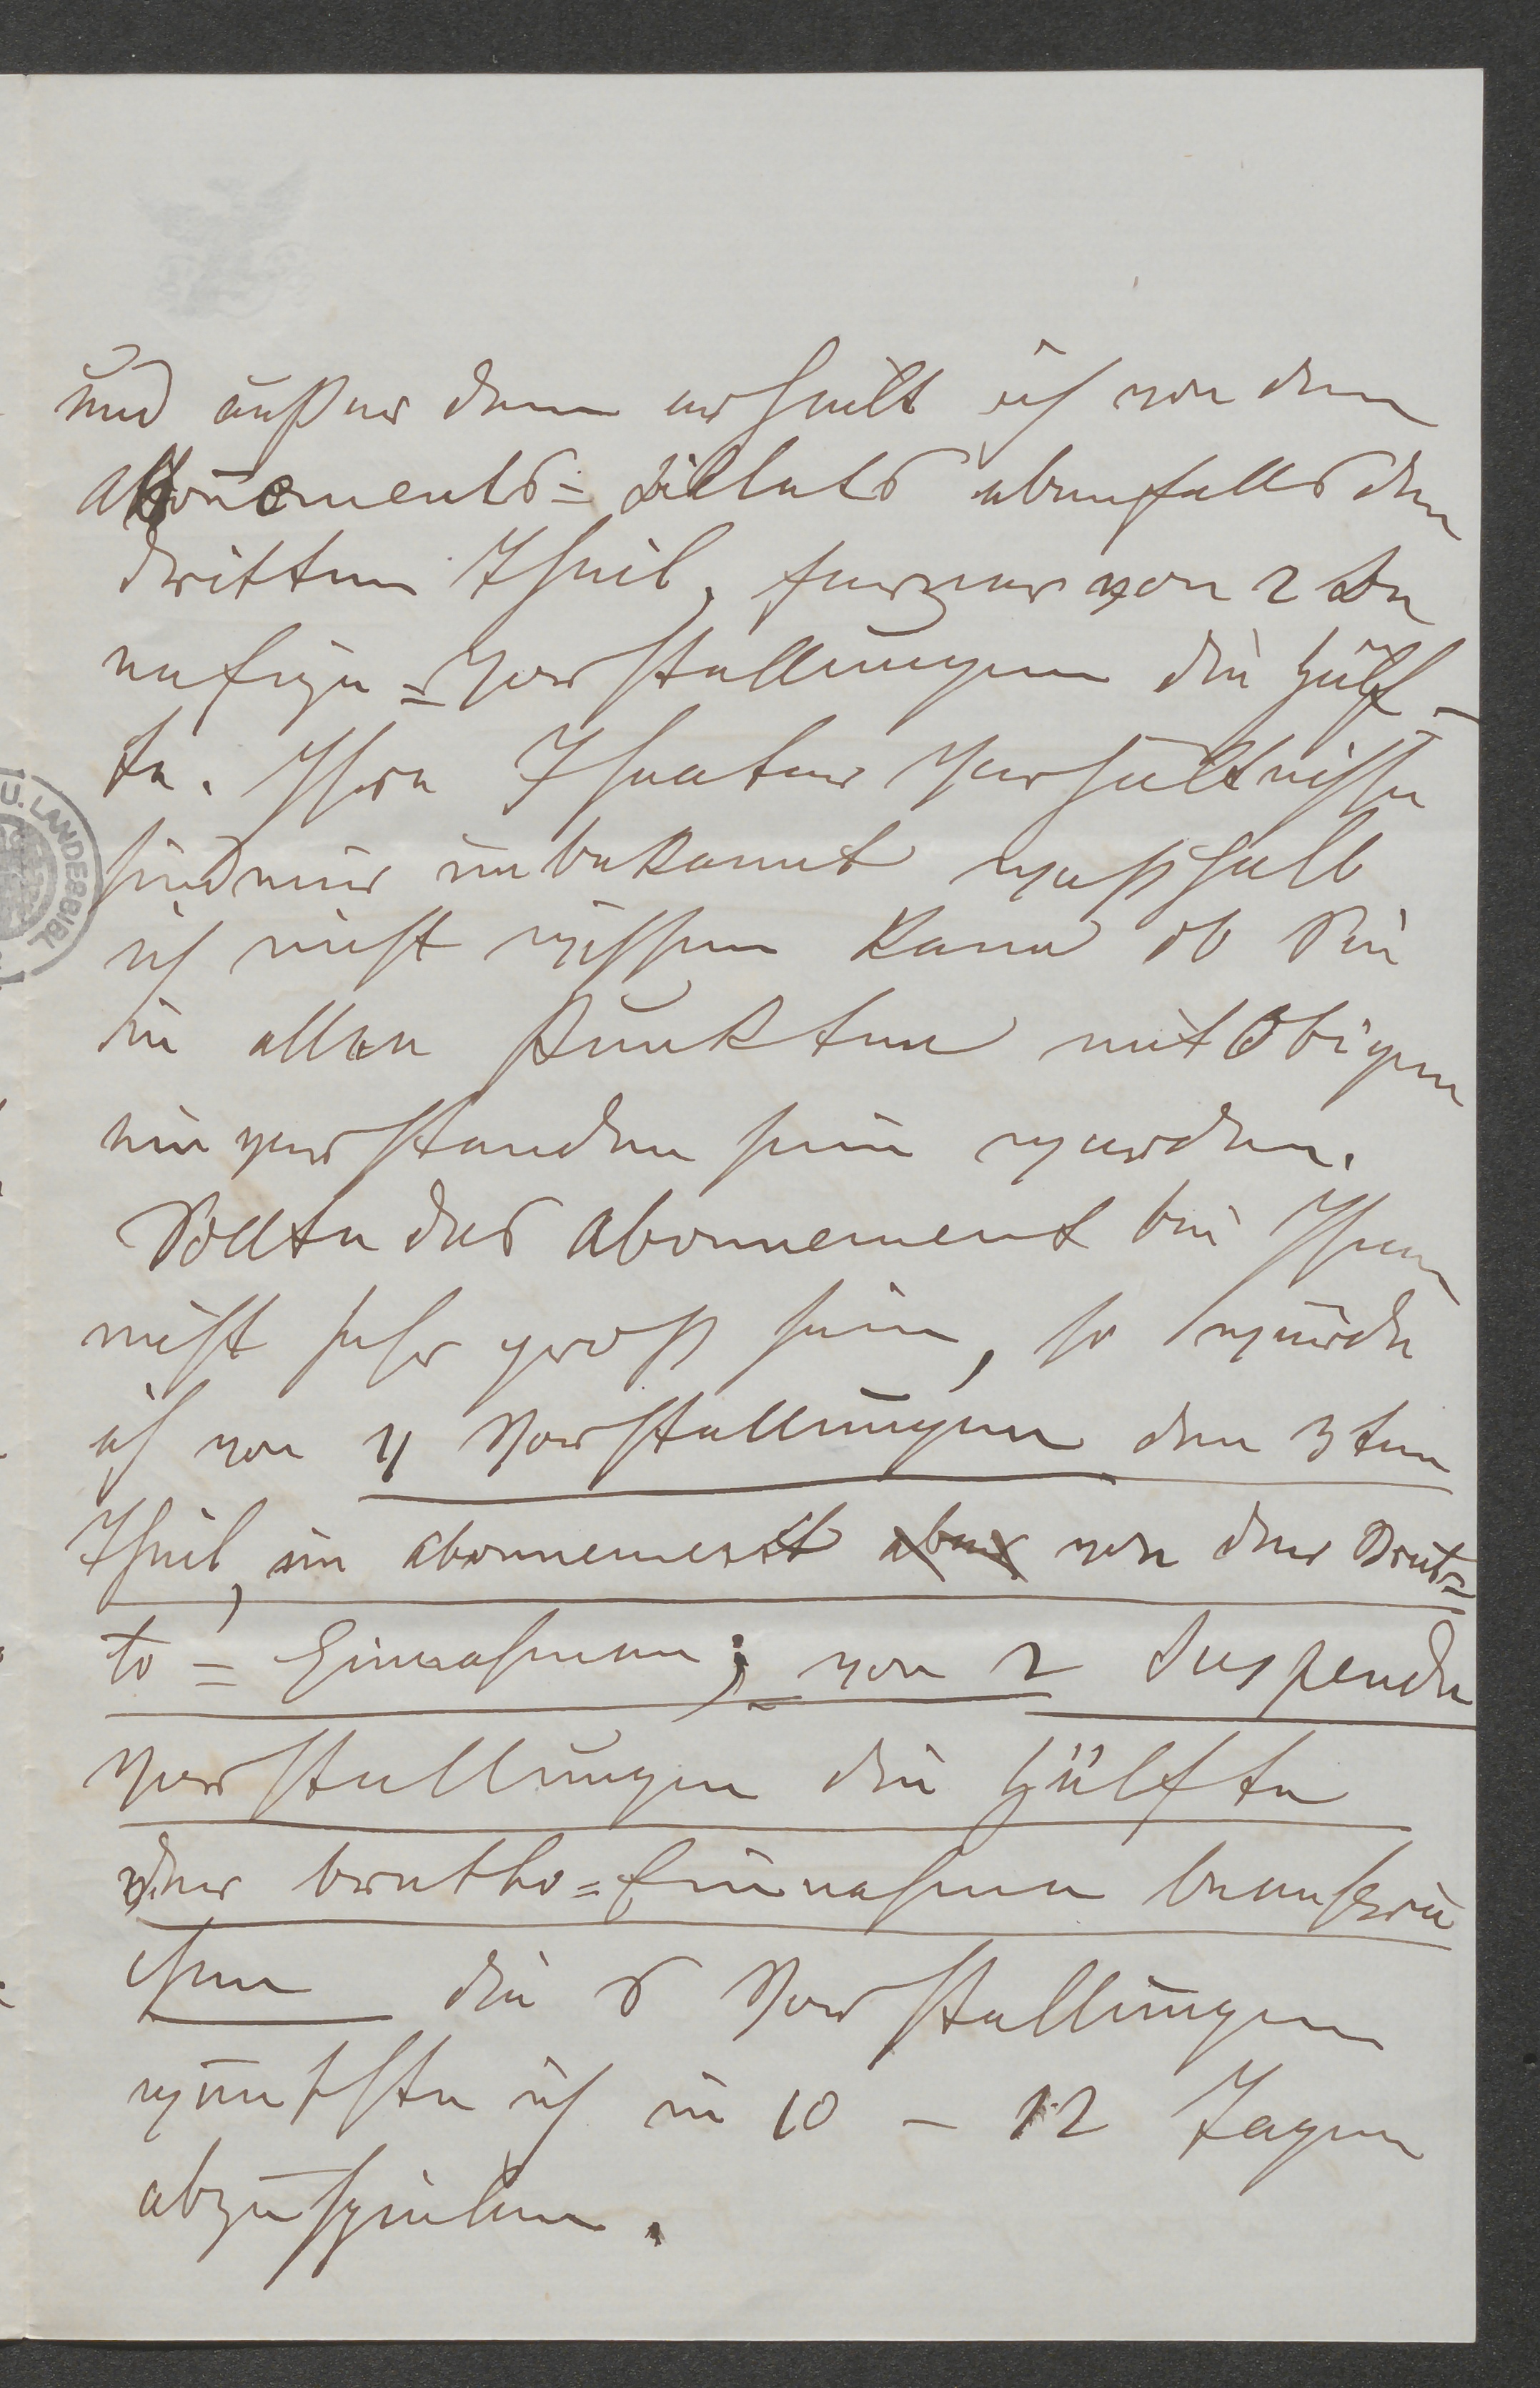 und außer dem erhielt ich von den
Abonements=Billets ebenfalls den
dritten Theil, ferner von 2 Be
nefize=Vorstellungen die Hälf-
te. Ihre Theater Verhältnisse
sind mir unbekannt weßhalb
ich nicht wissen kann ob Sie
in allen Punkten mit Obigen
einverstanden sein werden.
Sollte das Abonnement bei Ihnen
nicht sehr groß sein, so würde
ich von 4 Vorstellungen den 3ten
Theil, im Abonnement aber von der Brut=
to=Einnahmen; von 2 Suspendu
Vorstellungen die Hälfte
der brutto=Einnahmen beanspru
chen die 6 Vorstellungen
wünschte ich in 10 – 12 Tagen
abzuspielen.
U. LANDESBIBL